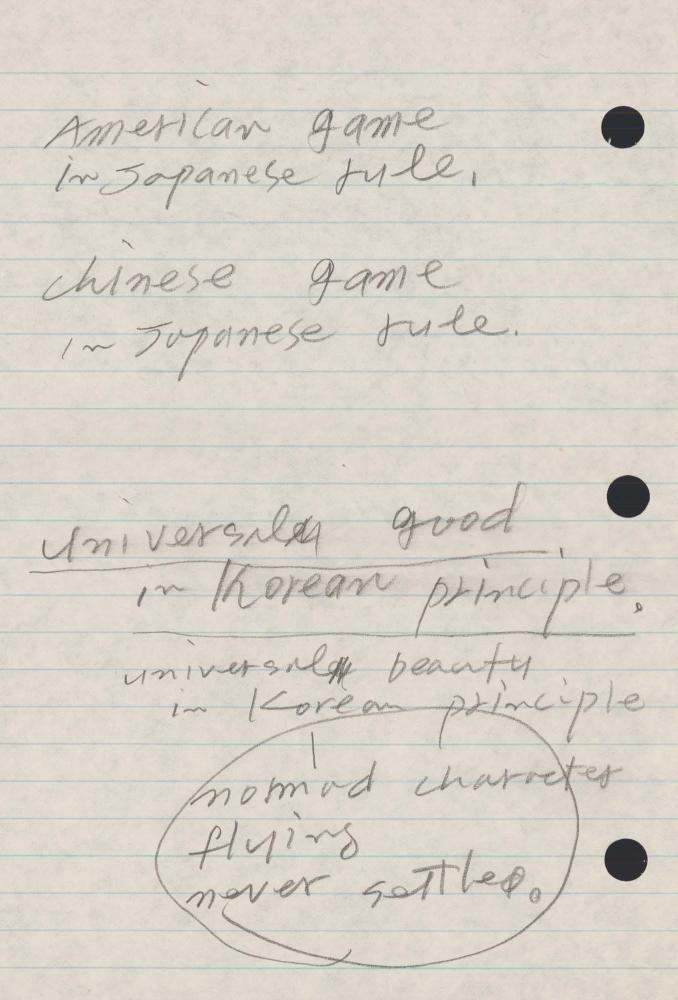 American game
in Japanese rule.
chinese game
in Japanese rule.
universal good
in Korean principle.
universal beauty
in Korean principle
nomad character
flying
never settled.